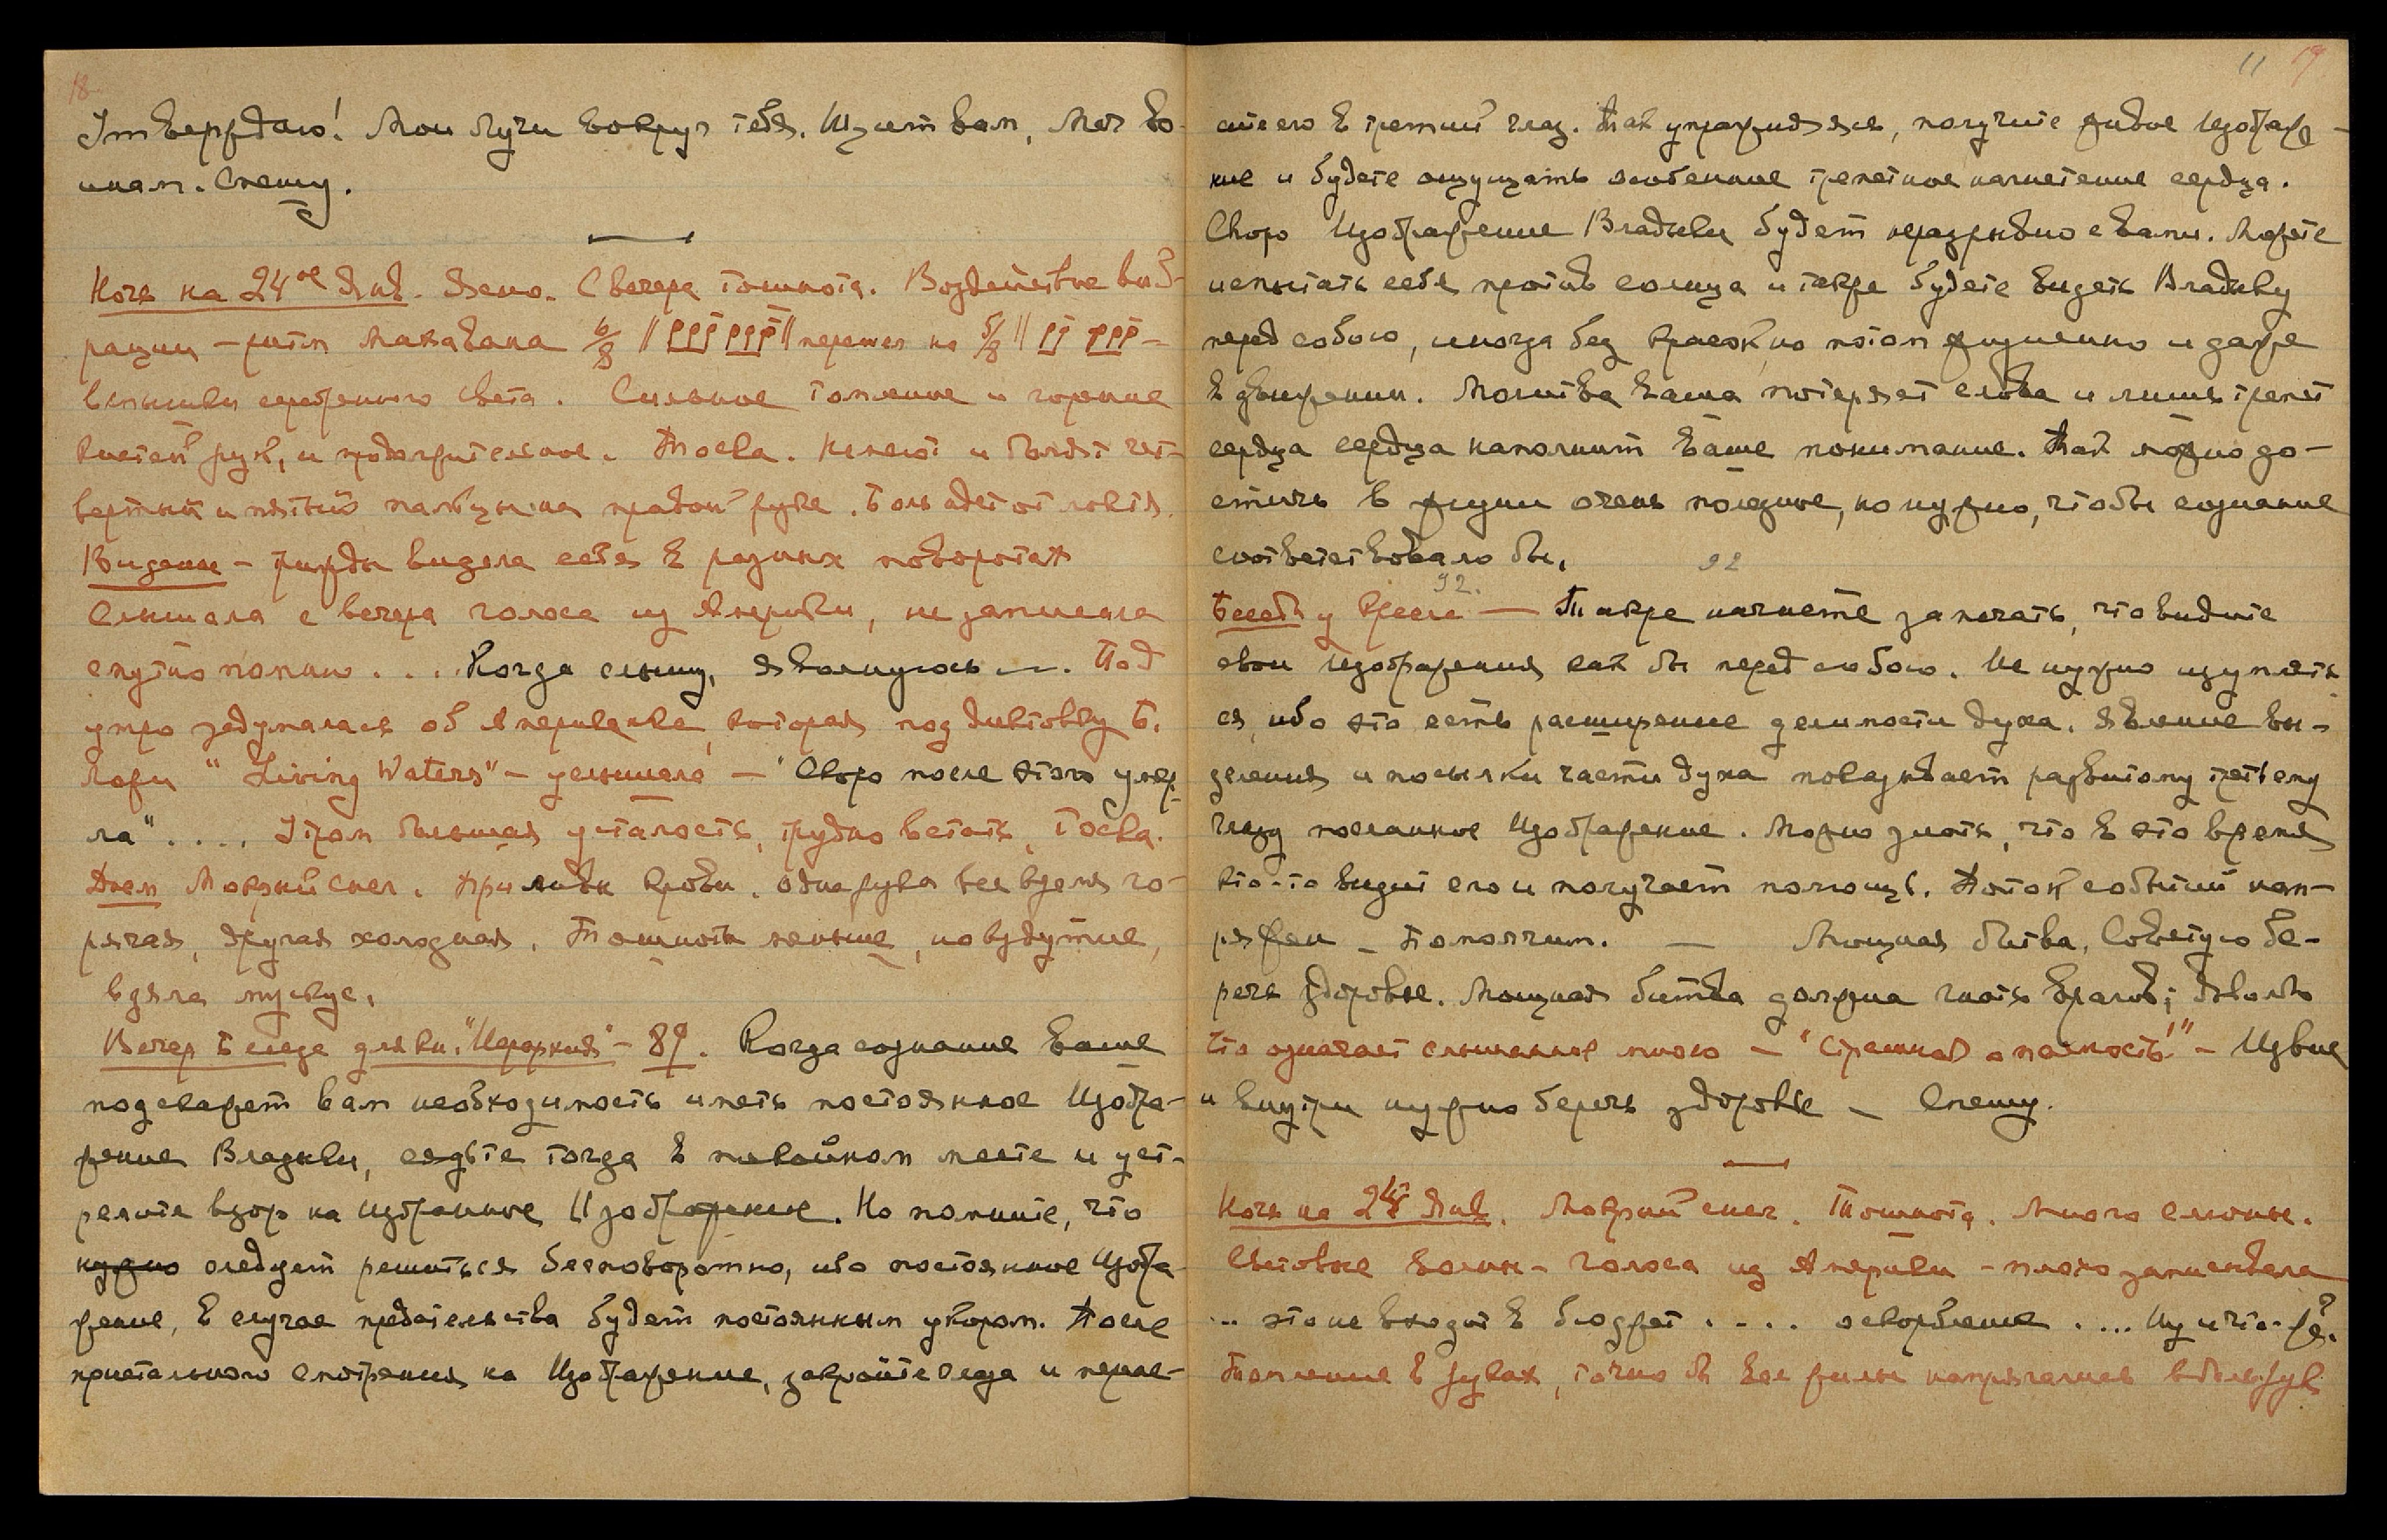 18
Утверждаю! Мои Лучи вокруг тебя. Щит вам, Меч во-
инам. Спешу.
Ночь на 24ое Янв. Ясно. С вечера тошнота. Воздействие виб-
рации – ритм Макавана 6/8 || || перешел на 5/8 ||
вспышки серебряного света. Сильное томление и горение
кистей рук, и продолжительное. Тоска. Немеют и болят чет-
вертый и пятый пальцы на правой руке. Боль идет от локтя.
Видение – трижды видела себя в разных поворотах
Слышала с вечера голоса из Америки, не записала
смутно помню . . . . Когда слышу, я волнуюсь —. Под
утро задумалась об Американке, которая под диктовку Б.
"Living Waters" – услышала – "Скоро после этого умер-
ла" . . . . Утром большая усталость, трудно встать, тоска.
Днем Мокрый снег. Приливы крови. Одна рука все время го-
рячая, другая холодная. Тошнота меньше, но вздутие,
взяла мускус.
Вечер Беседа для кн. "Иерархия" – 89. Когда сознание ваше
подскажет вам необходимость иметь постоянное Изобра-
жение Владыки, сядьте тогда в спокойном месте и уст-
ремите взор на избранное Изображение. Но помните, что
нужно следует решиться бесповоротно, ибо постоянное Изобра-
жение, в случае предательства будет постоянным укором. После
пристального смотрения на Изображение, закройте глаза и перене-
11 19
сите его в третий глаз. Так упражняясь, получите живое Изображе-
ние и будете ощущать особенное трепетное нагнетение сердца.
Скоро Изображение Владыки будет неразрывно с вами. Можете
испытать себя против солнца и также будете видеть Владыку
перед собою, иногда без красок, но потом жизненно и даже
в движении. Молитва ваша потеряет слова и лишь трепет
сердца сердца наполнит ваше понимание. Так можно до-
стичь в жизни очень полезное, но нужно, чтобы сознание
соответствовало бы.
92
92.
Беседа у кресла — Также начнете замечать, что видите
свои Изображения как бы перед собою. Не нужно изумлять-
ся, ибо это есть расширение делимости духа. Явление вы-
деления и посылки части духа показывает развитому третьему
глазу посланное Изображение. Можно знать, что в это время
кто-то видит его и получает помощь. Поток событий нап-
ряжен – Помолчим. — Мощная битва. Советую бе-
речь здоровье. Мощная битва должна гнать врагов; довольно
Что означает слышанное мною – "Страшная опасность!" – Извне
и внутри нужно беречь здоровье – Спешу.
Ночь на 25 Янв. Мокрый снег. Тошнота. Много слюны.
Световые волны – голоса из Америки – плохо записывала
... это не входит в бюджет . . . . оскорбление . . . . Ну и что же?
Томление в руках, точно бы все жилы напряглись вдоль рук